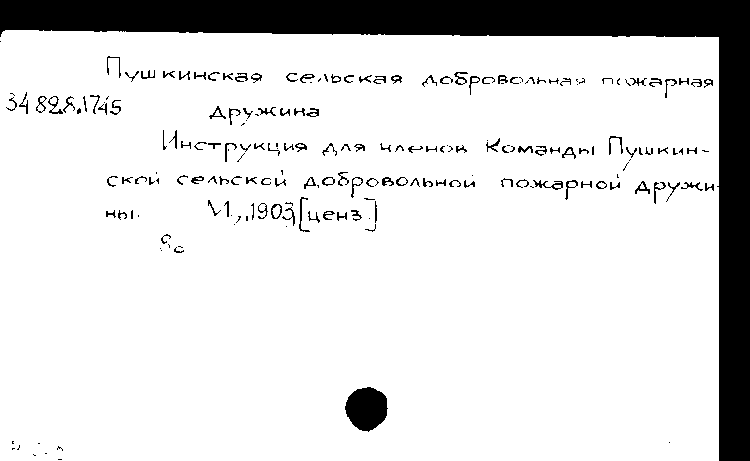 Пушкинская сельская добровольная пожарная
34 82.8.1745 дружина
Инструкция для членов Команды Пушкин-
ской сельской добровольной пожарной дружи
ны. М., 1903, [ценз.]
8°